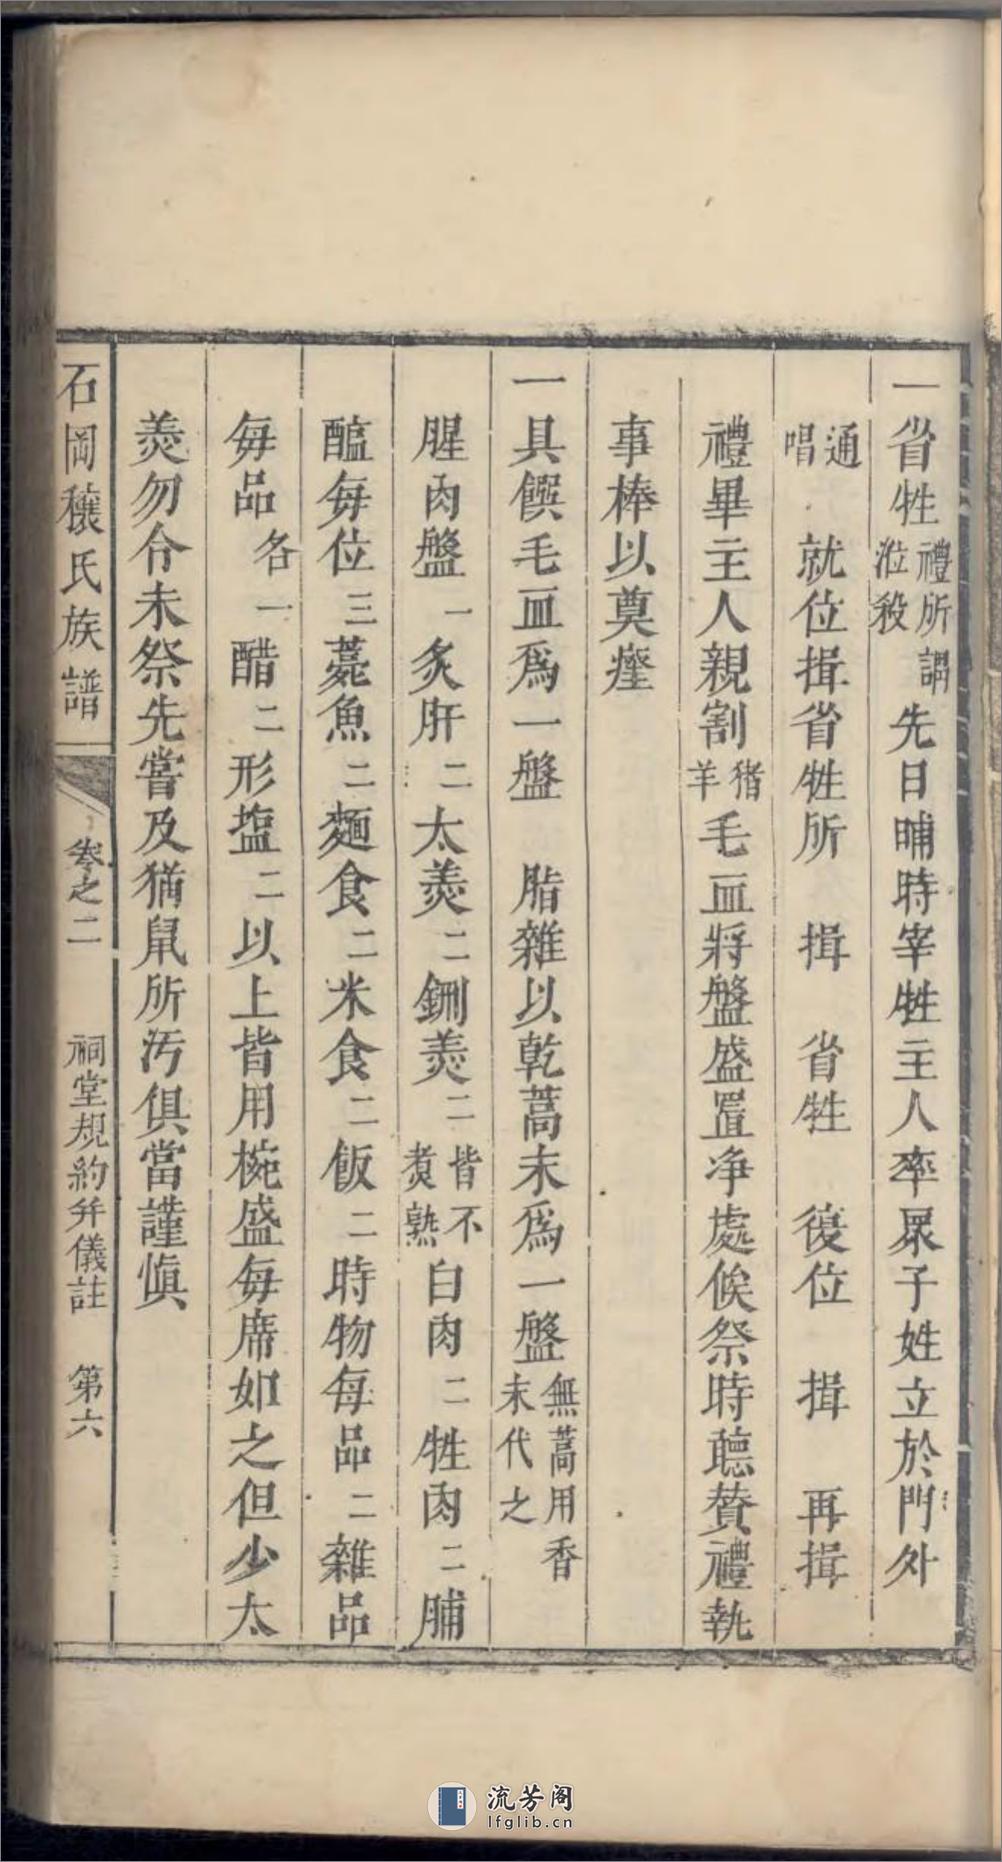 一省牲禮所謂涖殺先日晡時宰牲主人率衆子姓立於門外
通唱就位揖省牲所揖省牲復位揖再揖
禮畢主人親割猪羊毛血將盤盛置净處候祭時聽贊禮執
事捧以奠瘞
一具饌毛血爲一盤脂雜以乾蒿末爲一盤無蒿用香末代之
腥肉盤一炙肝二太羮二鉶羮二皆不煑熟白肉二牲肉二脯
醢每位三薧魚二麵食二米食二飯二時物每品二雜品
每品各一醋二形塩二以上皆用椀盛每席如之但少太
羮勿令未祭先嘗及猫鼠所汚俱當謹慎
石岡穰氏族譜 卷之二 祠堂規約并儀註 第六
流芳阁
lfglib.cn